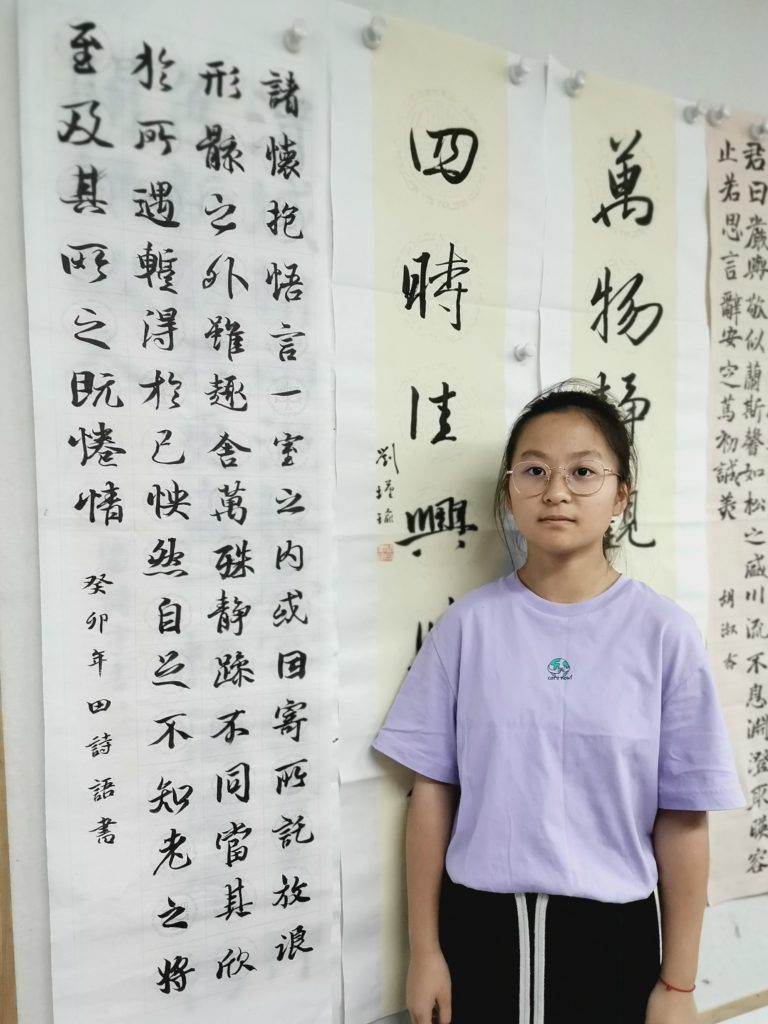 君曰嚴與敬似蘭斯馨如松之盛川流不息淵澄取暎容
止若思言辭安定篤初誠美
胡淑
萬物静觀
四時佳興
劉瑾瑜
諸懷抱悟言一室之内或因寄所託放浪
形骸之外雖趣舍萬殊静躁不同當其欣
於所遇暫得於己怏然自足不知老之將
至及其所之既惓情
癸卯年田詩語書
care now!